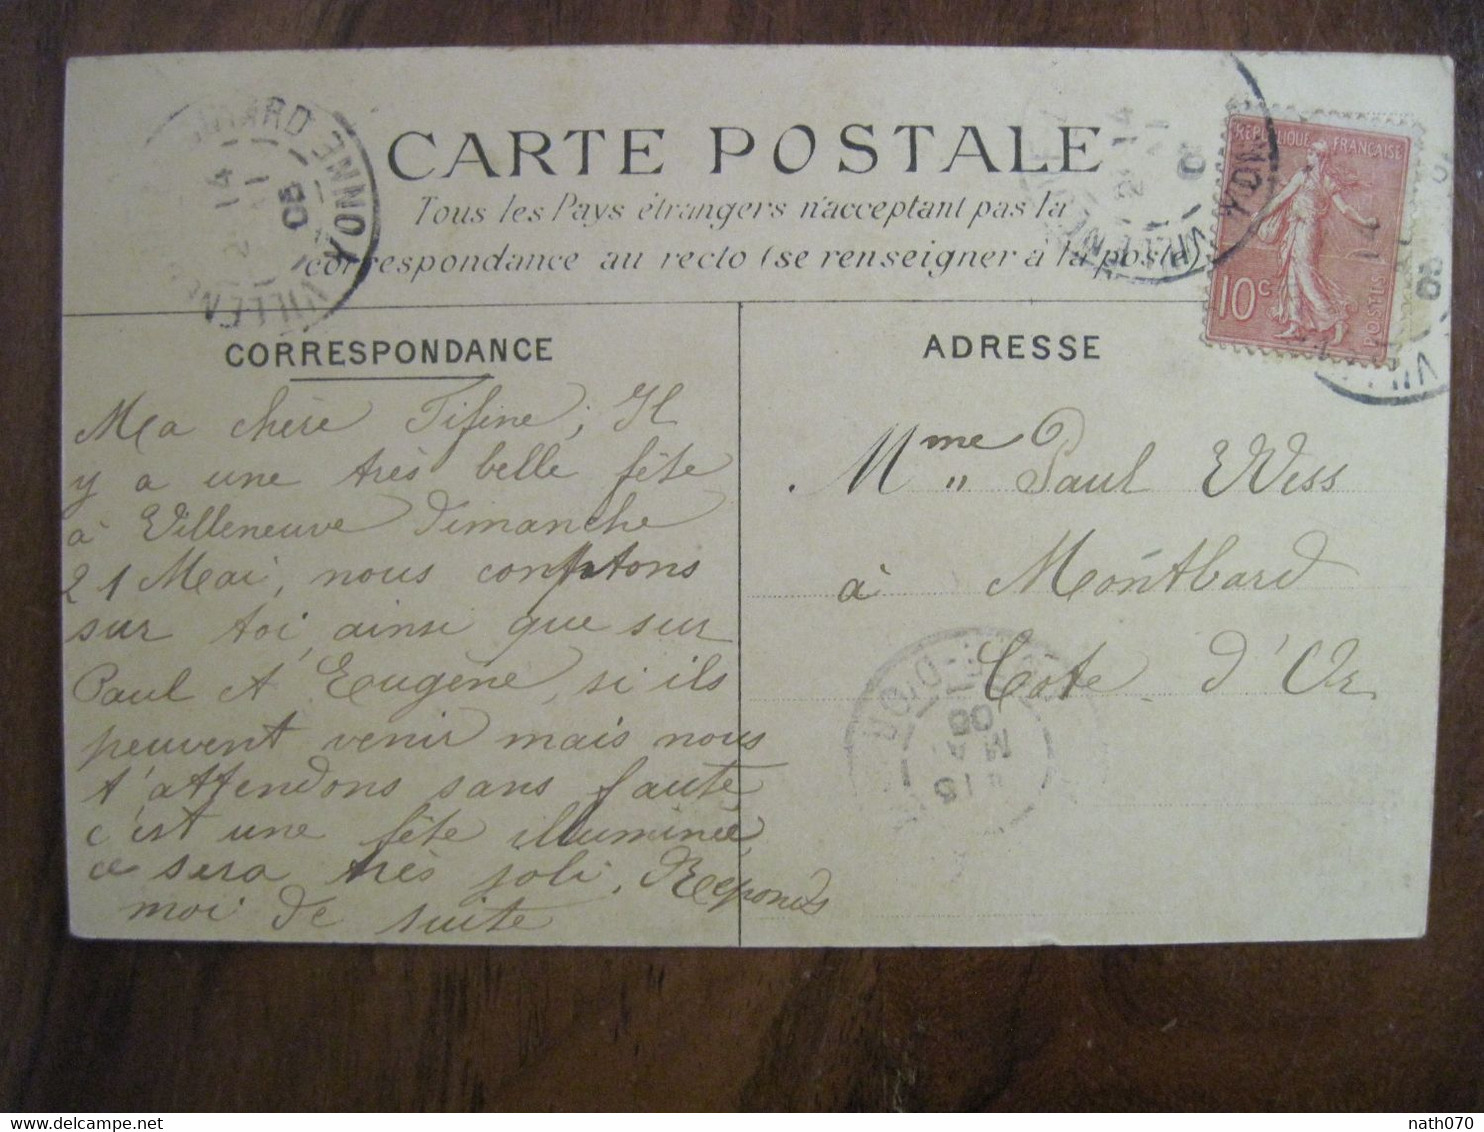 CARTE POSTALE
Tous les Pays étrangers n'acceptant pas la
correspondance au recto (se renseigner à la poste)
CORRESPONDANCE
Ma chère Fifine, Il
y a une très belle fête
à Villeneuve Dimanche
21 Mai, nous comptons
sur toi, ainsi que sur
Paul et Eugène, si ils
peuvent venir mais nous
t'attendons sans faute,
c'est une fête illuminée,
ce sera très joli, Réponds
moi de suite
ADRESSE
Mme Paul Weiss
à Montbard
Cote d'Or
REPUBLIQUE FRANÇAISE
10c
POSTES
YONNE
14
05
14
YONNE
05
COTE-D'OR
MAI
05
nath070
delcampe.net